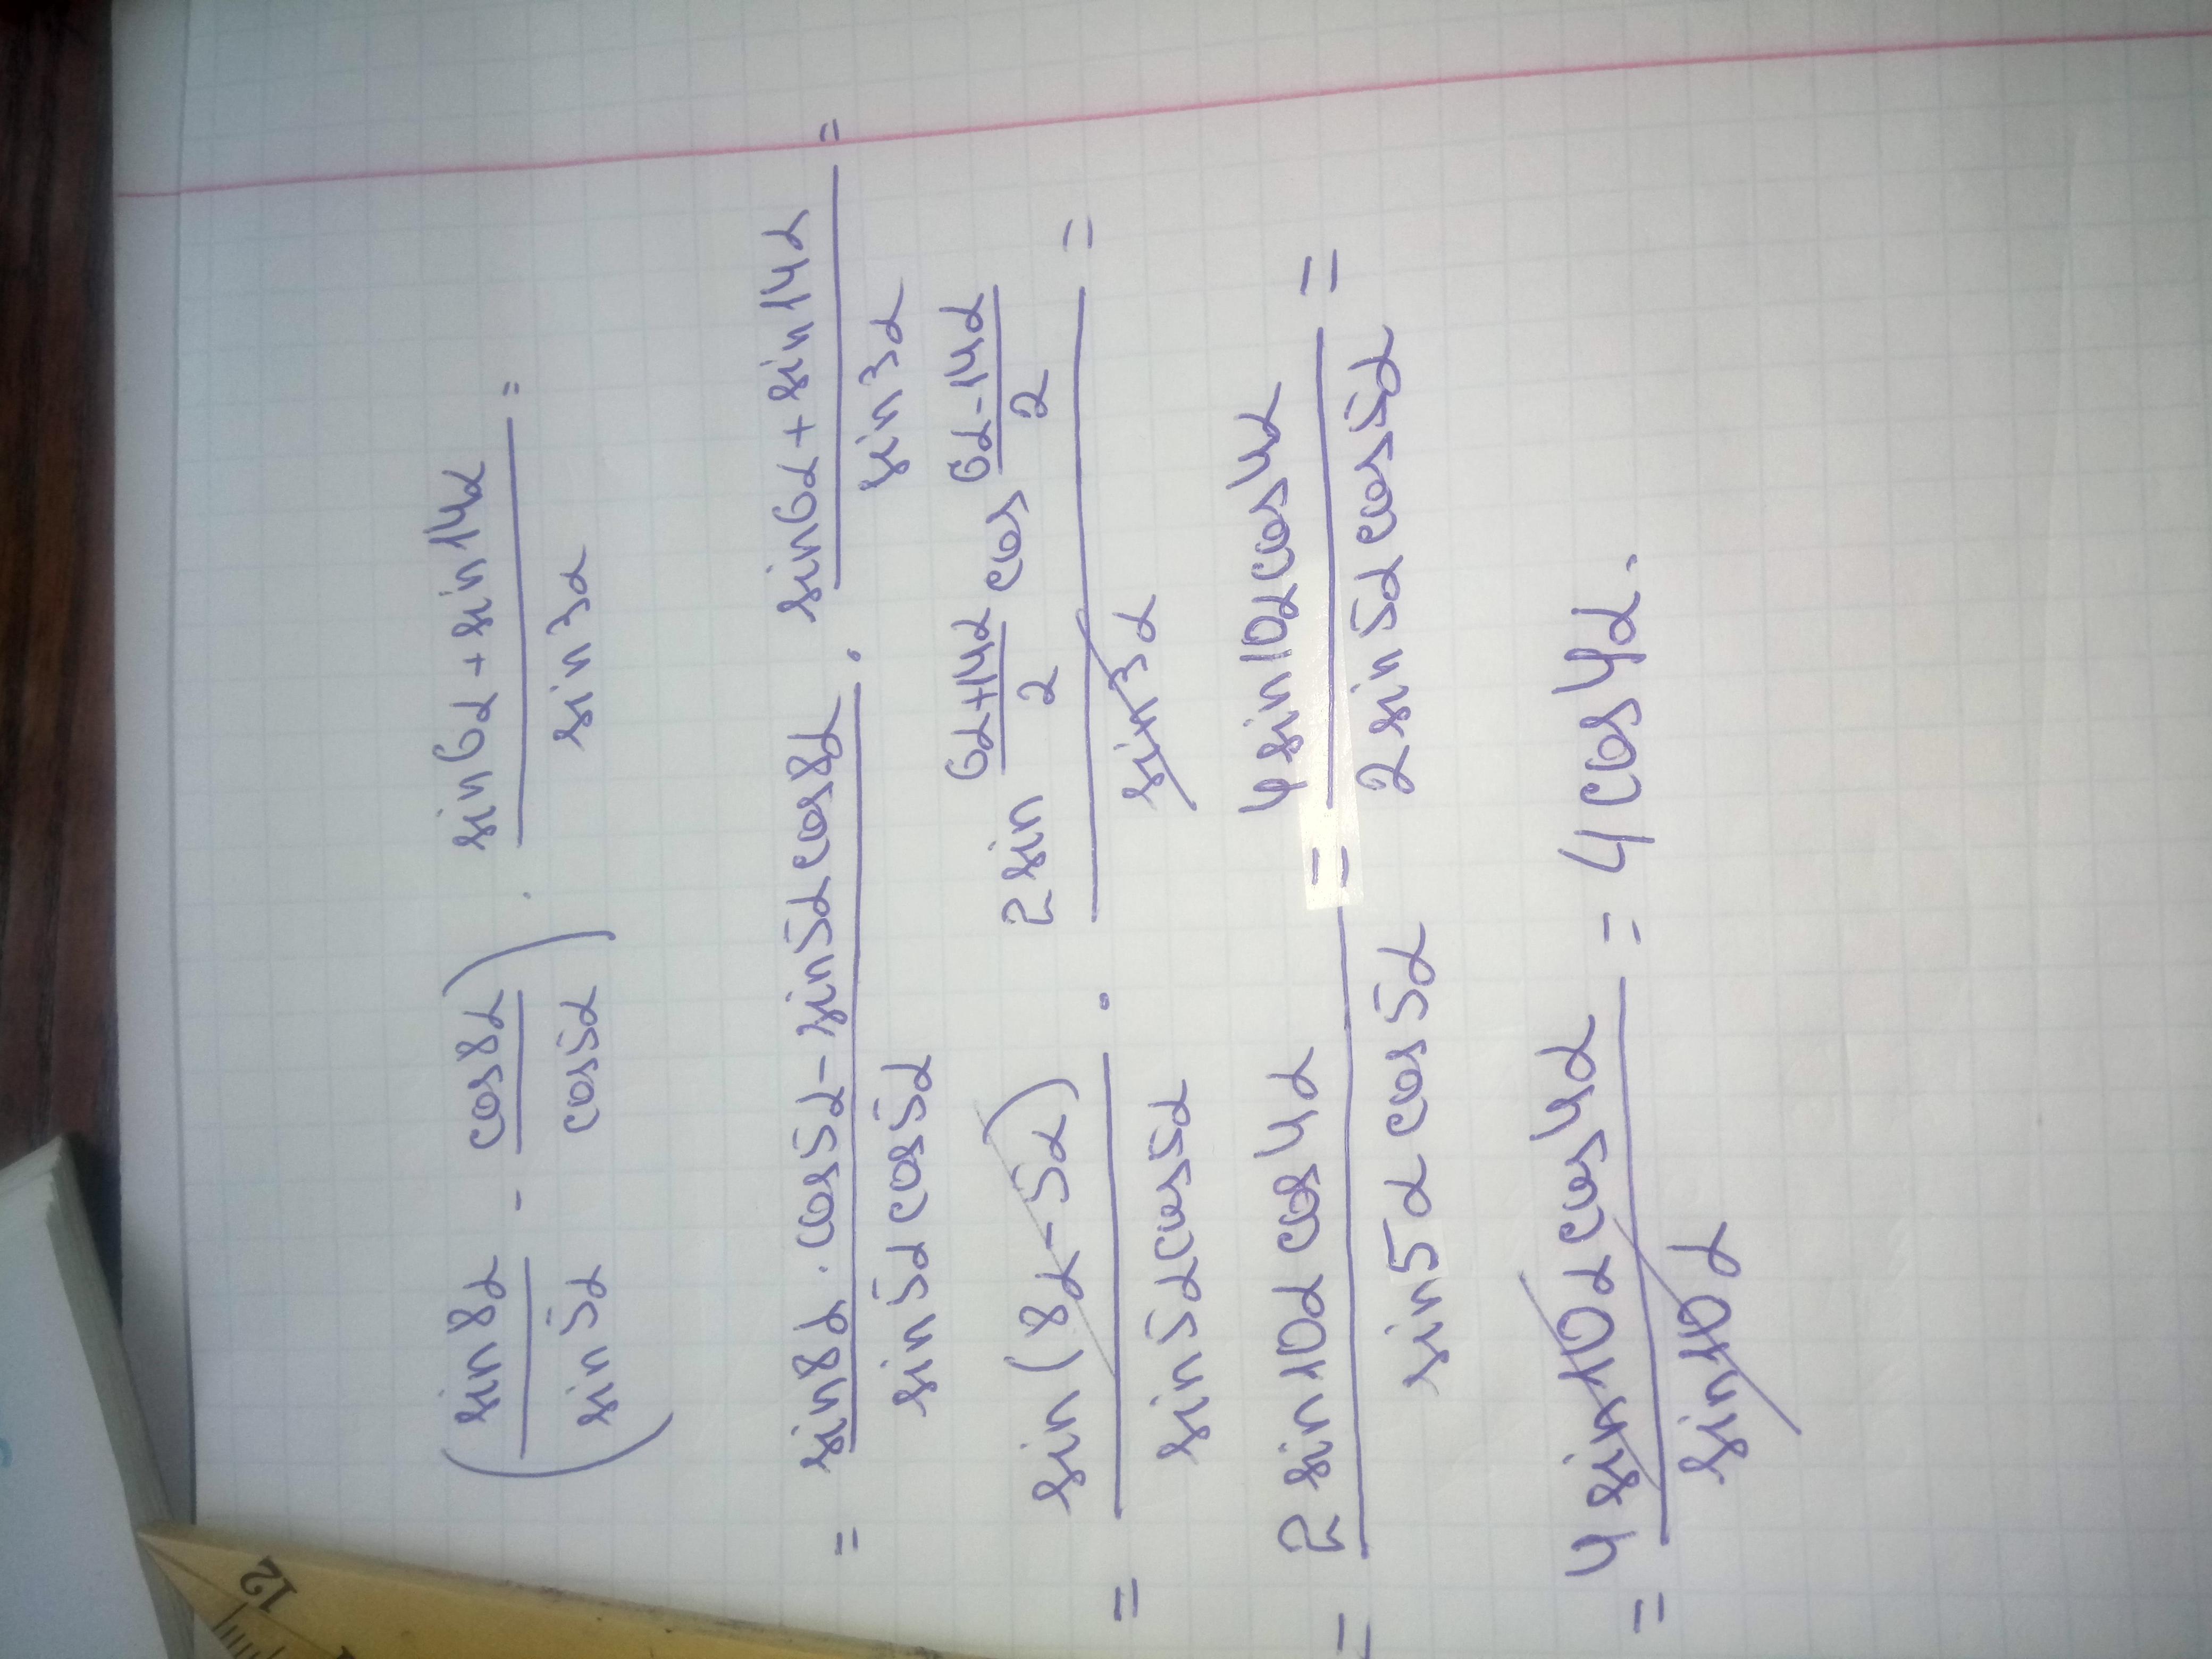 (sin8α/sin5α - cos8α/cos5α) · (sin6α + sin14α)/sin3α =
= (sin8α · cos5α - sin5α cos8α)/(sin5α cos5α) · (sin6α + sin14α)/sin3α =
= sin(8α - 5α)/(sin5α cos5α) · (2 sin (6α+14α)/2 cos (6α-14α)/2)/sin3α =
= (2 sin10α cos4α)/(sin5α cos5α) = (4 sin10α cos4α)/(2 sin5α cos5α) =
= (4 sin10α cos4α)/sin10α = 4 cos4α.
12